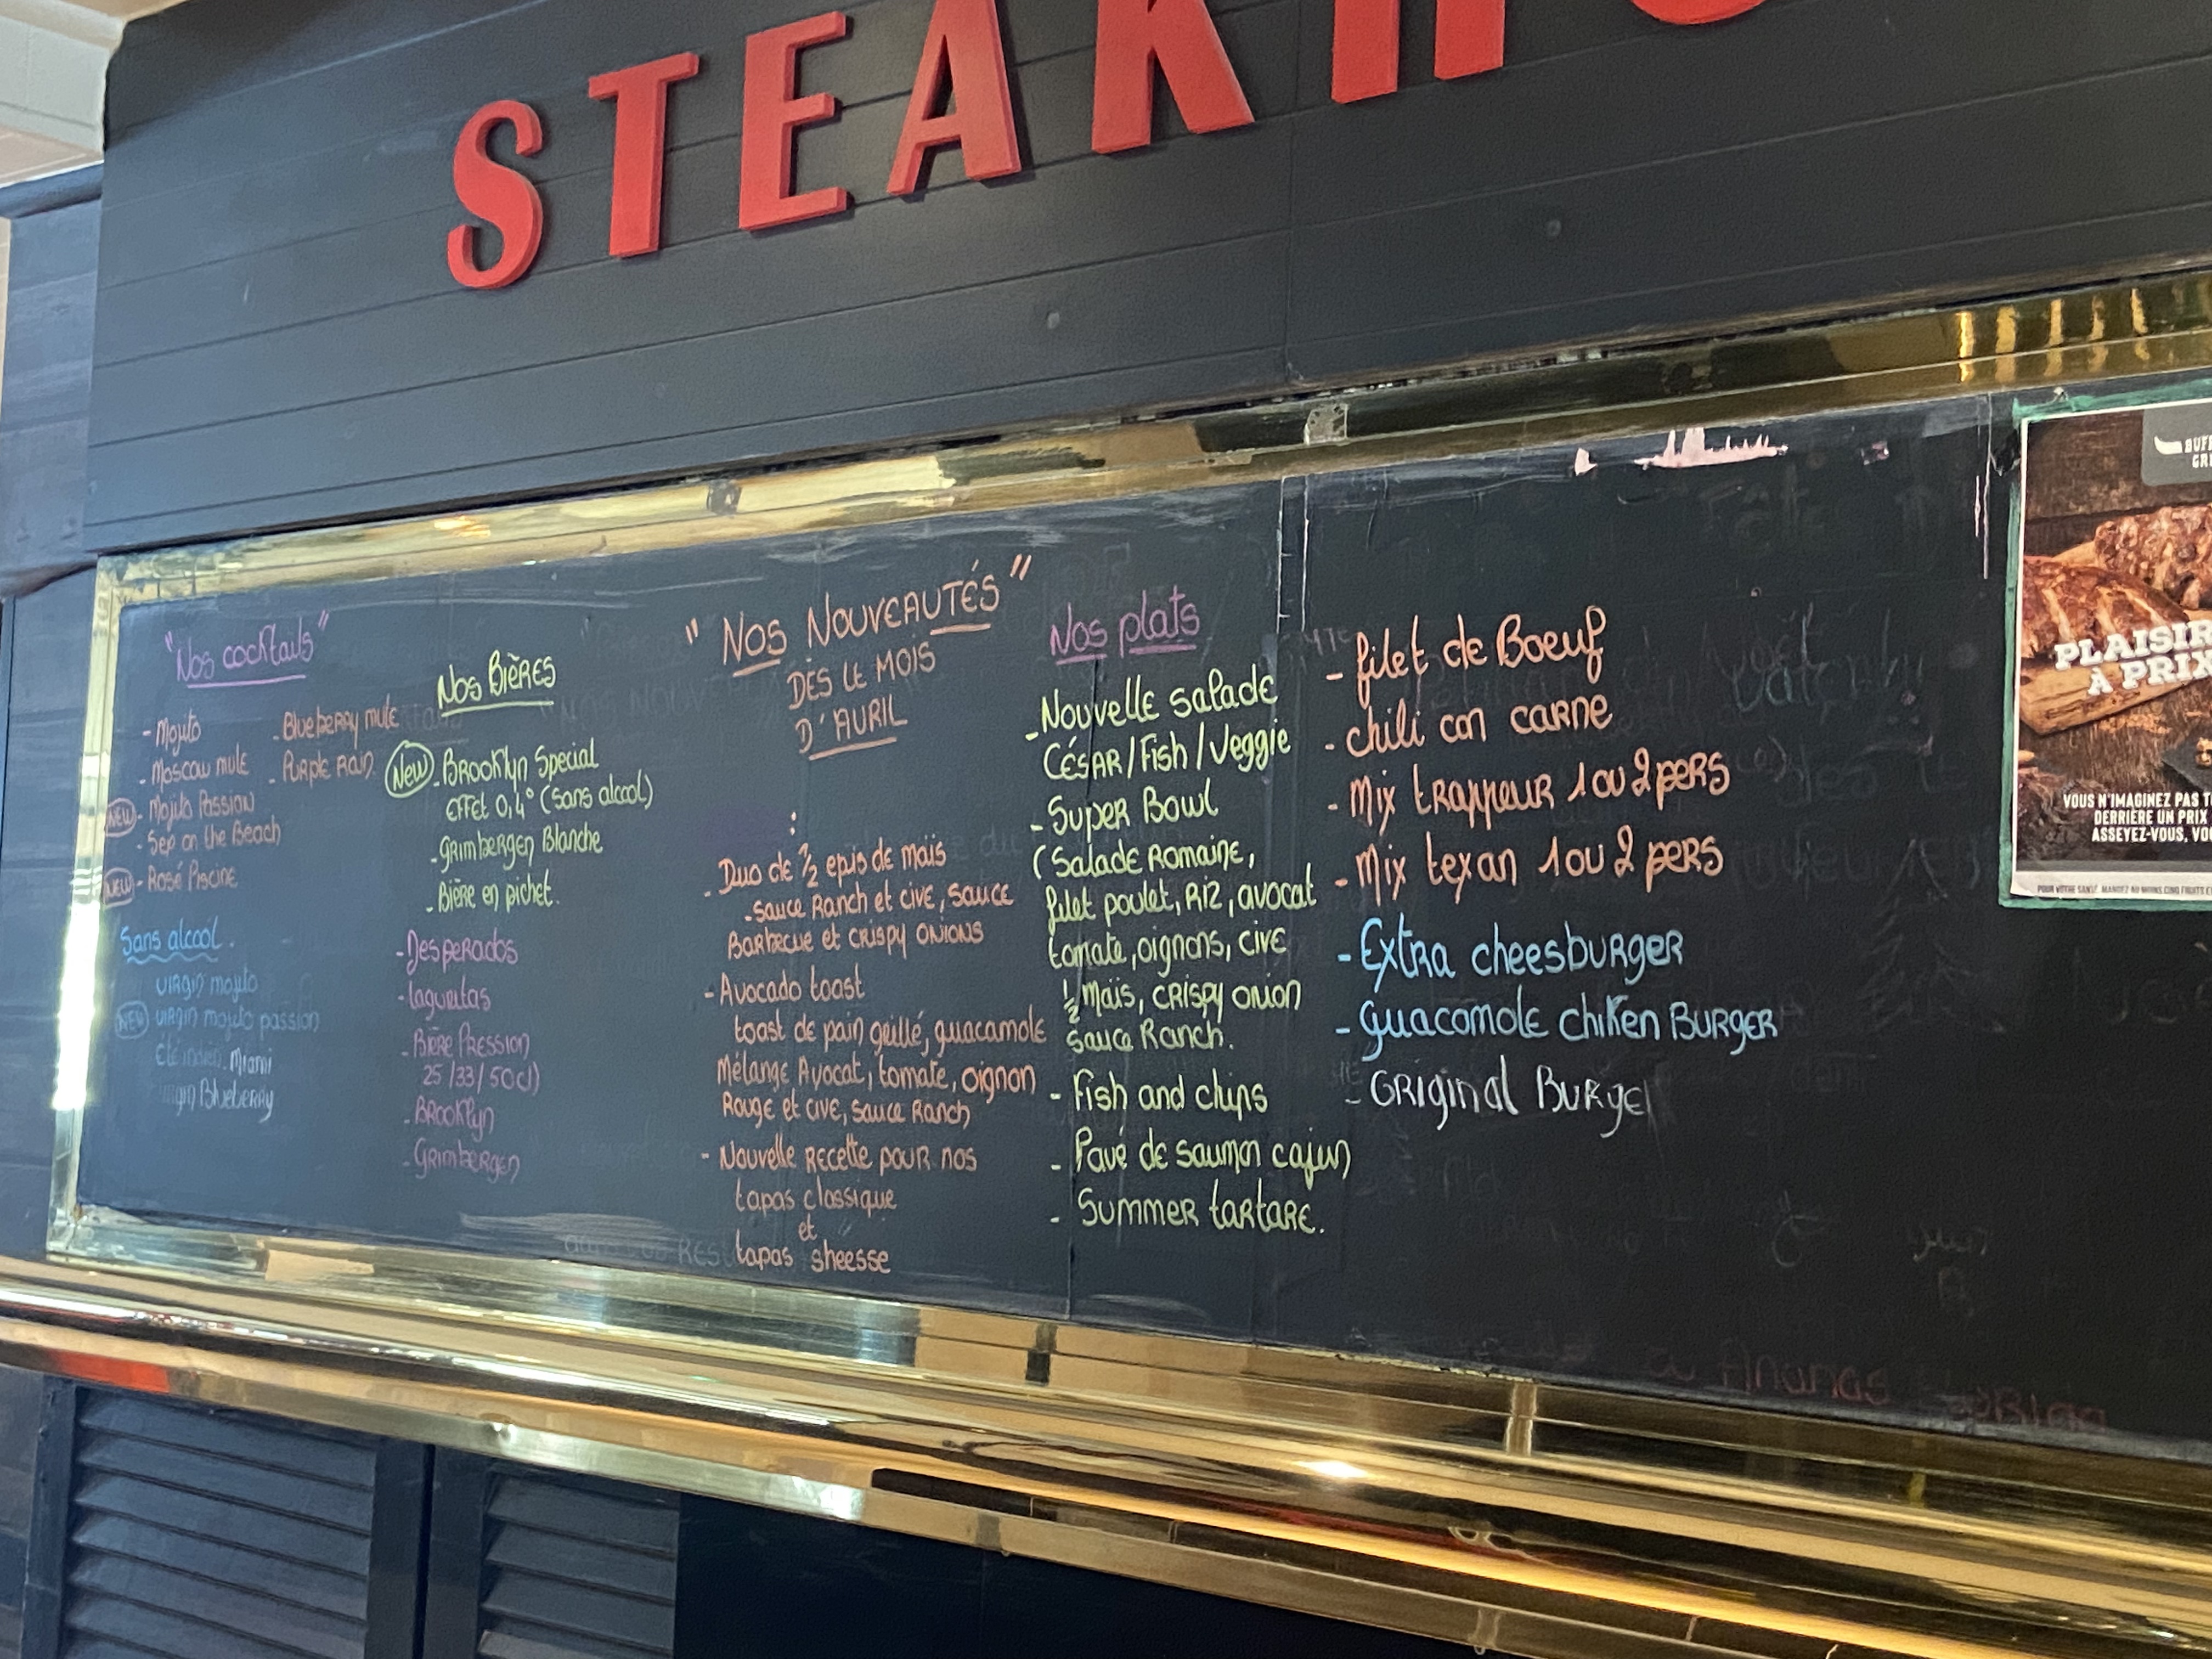 STEAKHO
"Nos cocktails"
- Mojito
- Moscow mule
NEW - Mojito Passion
- Sex on the Beach
NEW - Rosé Piscine
- Blueberry mule
- Purple Rain
Sans alcool.
virgin mojito
NEW virgin mojito passion
Été indien. Miami
virgin Blueberry
Nos Bières
New - Brooklyn Special
effet 0,4° (sans alcool)
- Grimbergen Blanche
- Bière en pichet.
- Desperados
- lagunitas
- Bière Pression
25/33/50cl)
- Brooklyn
- Grimbergen
" Nos Nouveautés "
Dès le mois
d'avril
:
- Duo de ½ epis de maïs
- sauce Ranch et cive, sauce
Barbecue et crispy onions
- Avocado toast
toast de pain grillé, guacamole
Mélange Avocat, tomate, oignon
Rouge et cive, sauce Ranch
- Nouvelle recette pour nos
tapas classique
et
tapas sheesse
Nos plats
- Nouvelle salade
César/Fish/Veggie
- Super Bowl
(Salade Romaine,
filet poulet, Riz, avocat
tomate, oignons, cive
½ Maïs, crispy onion
sauce Ranch.
- Fish and chips
- Pavé de saumon cajun
- Summer tartare.
- filet de Boeuf
- chili con carne
- Mix trappeur 1 ou 2 pers
- Mix texan 1 ou 2 pers
- Extra cheesburger
- Guacomole chiken Burger
- Original Burger
BUFF
GRI
PLAISIR
À PRIX
VOUS N'IMAGINEZ PAS T
DERRIÈRE UN PRIX
ASSEYEZ-VOUS, VO
POUR VOTRE SANTÉ, MANGEZ AU MOINS CINQ FRUITS E